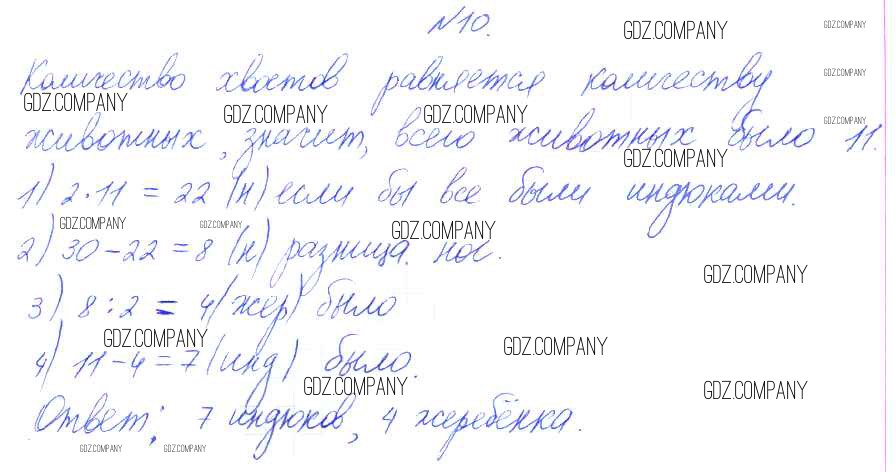 №10.
Количество хвостов равняется количеству
животных, значит, всего животных было 11.
1) 2·11 = 22 (н) если бы все были индюками.
2) 30-22 = 8 (н) разница ног.
3) 8:2 = 4 (жер) было
4) 11-4 = 7 (инд) было.
Ответ: 7 индюков, 4 жеребёнка.
GDZ.COMPANY GDZ.COMPANY
GDZ.COMPANY
GDZ.COMPANY GDZ.COMPANY GDZ.COMPANY GDZ.COMPANY
GDZ.COMPANY
GDZ.COMPANY GDZ.COMPANY GDZ.COMPANY
GDZ.COMPANY
GDZ.COMPANY GDZ.COMPANY
GDZ.COMPANY GDZ.COMPANY
GDZ.COMPANY GDZ.COMPANY